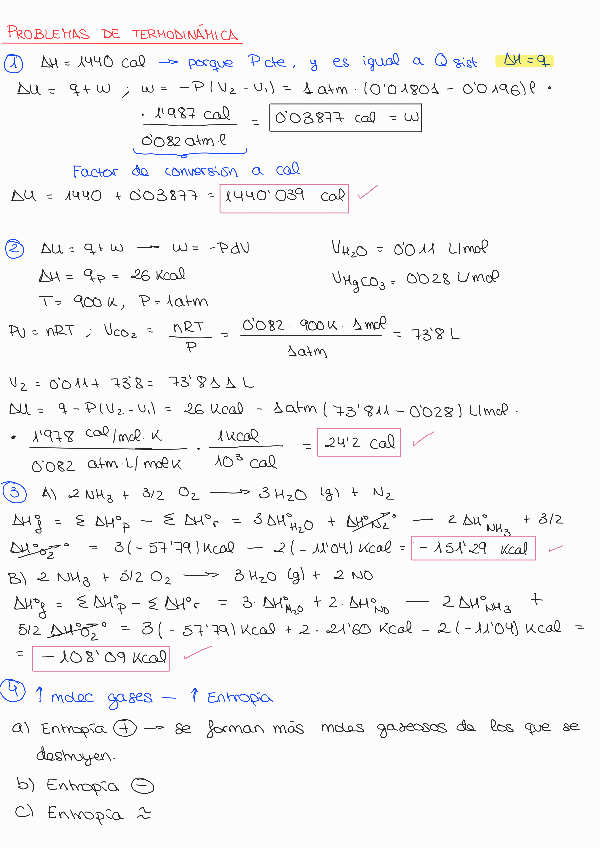 PROBLEMAS DE TERMODINÁMICA
① ΔH = 1440 cal → porque P cte, y es igual a Q sist ΔH = q
ΔU = q + w ; w = -P(V₂ - V₁) = 1 atm · (0'01801 - 0'0196) l ·
· 1'987 cal / 0'082 atm·l = 0'03877 cal = w
Factor de conversión a cal
ΔU = 1440 + 0'03877 = 1440'039 cal ✓
② ΔU = q + w — w = -PdV V_H₂O = 0'011 L/mol
ΔH = qp = 26 Kcal V_HgCO₃ = 0'028 L/mol
T = 900 K, P = 1 atm
PV = nRT ; V_CO₂ = nRT / P = 0'082 · 900 K · 1 mol / 1 atm = 73'8 L
V₂ = 0'011 + 73'8 = 73'811 L
ΔU = q - P(V₂ - V₁) = 26 Kcal - 1 atm (73'811 - 0'028) L/mol ·
· 1'978 cal/mol·K / 0'082 atm·L/mol K · 1 Kcal / 10³ cal = 24'2 cal ✓
③ A) 2 NH₃ + 3/2 O₂ → 3 H₂O (g) + N₂
ΔH°f = Σ ΔH°p - Σ ΔH°r = 3 ΔH°H₂O + ΔH°N₂ — 2 ΔH°NH₃ + 3/2
ΔH°O₂ = 3(-57'79) Kcal - 2(-11'04) Kcal = -151'29 Kcal ✓
B) 2 NH₃ + 5/2 O₂ → 3 H₂O (g) + 2 NO
ΔH°f = Σ ΔH°p - Σ ΔH°r = 3 · ΔH°H₂O + 2 · ΔH°NO — 2 ΔH°NH₃ +
5/2 ΔH°O₂ = 3(-57'79) Kcal + 2 · 21'60 Kcal - 2(-11'04) Kcal =
= -108'09 Kcal ✓
④ ↑ molec gases — ↑ Entropía
a) Entropía ⊕ → se forman más moles gaseosos de los que se
destruyen.
b) Entropía ⊖
c) Entropía ≈